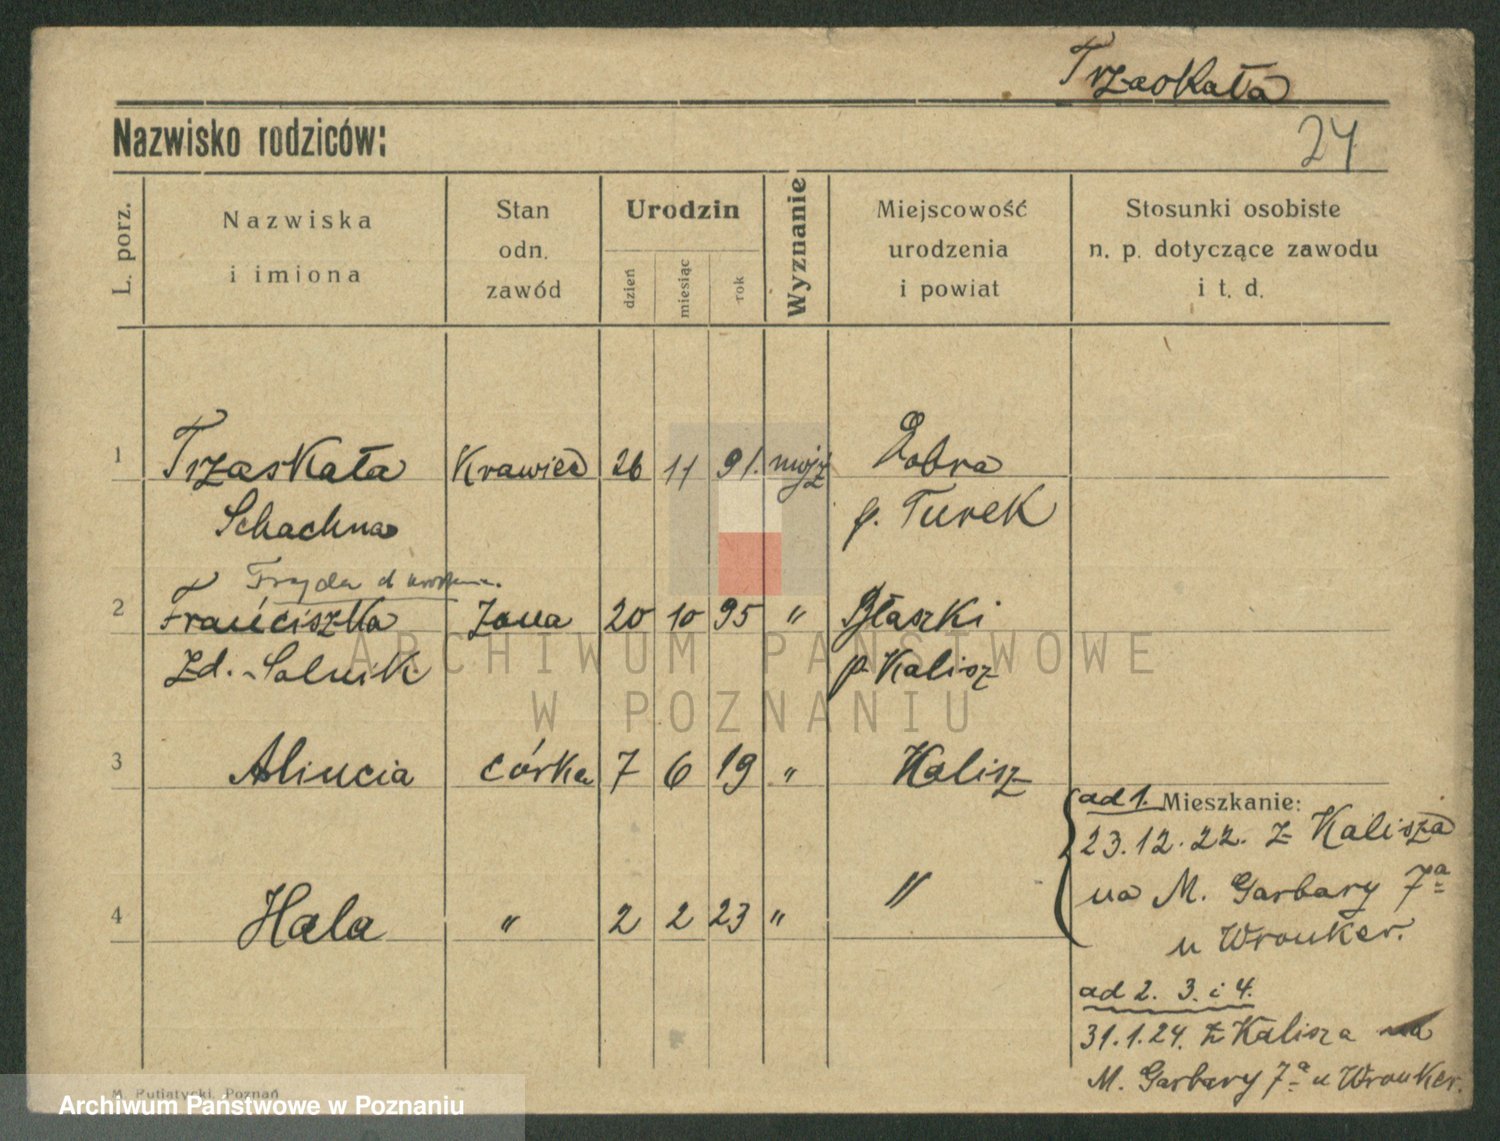 Trzaskała
Nazwisko rodziców:
24
L. porz.
Nazwiska
i imiona
Stan
odn.
zawód
Urodzin
dzień
miesiąc
rok
Wyznanie
Miejscowość
urodzenia
i powiat
Stosunki osobiste
n. p. dotyczące zawodu
i t. d.
1 Trzaskała Krawiec 26 11 91. mojż Dobra
Schachna p. Turek
Frajda
2 Franciszka Żona 20 10 95 " Błaszki
Zd. - Solnik p. Kalisz
3 Alincia córka 7 6 19 " Kalisz
4 Hala " 2 2 23 " "
ad 1. Mieszkanie:
23.12.22. z Kalisza
na M. Garbary 7a
u Wronker.
ad 2. 3. i 4.
31.1.24. z Kalisza na
M. Garbary 7a u Wronker.
ARCHIWUM PAŃSTWOWE
W POZNANIU
M. Putiatycki, Poznań
Archiwum Państwowe w Poznaniu